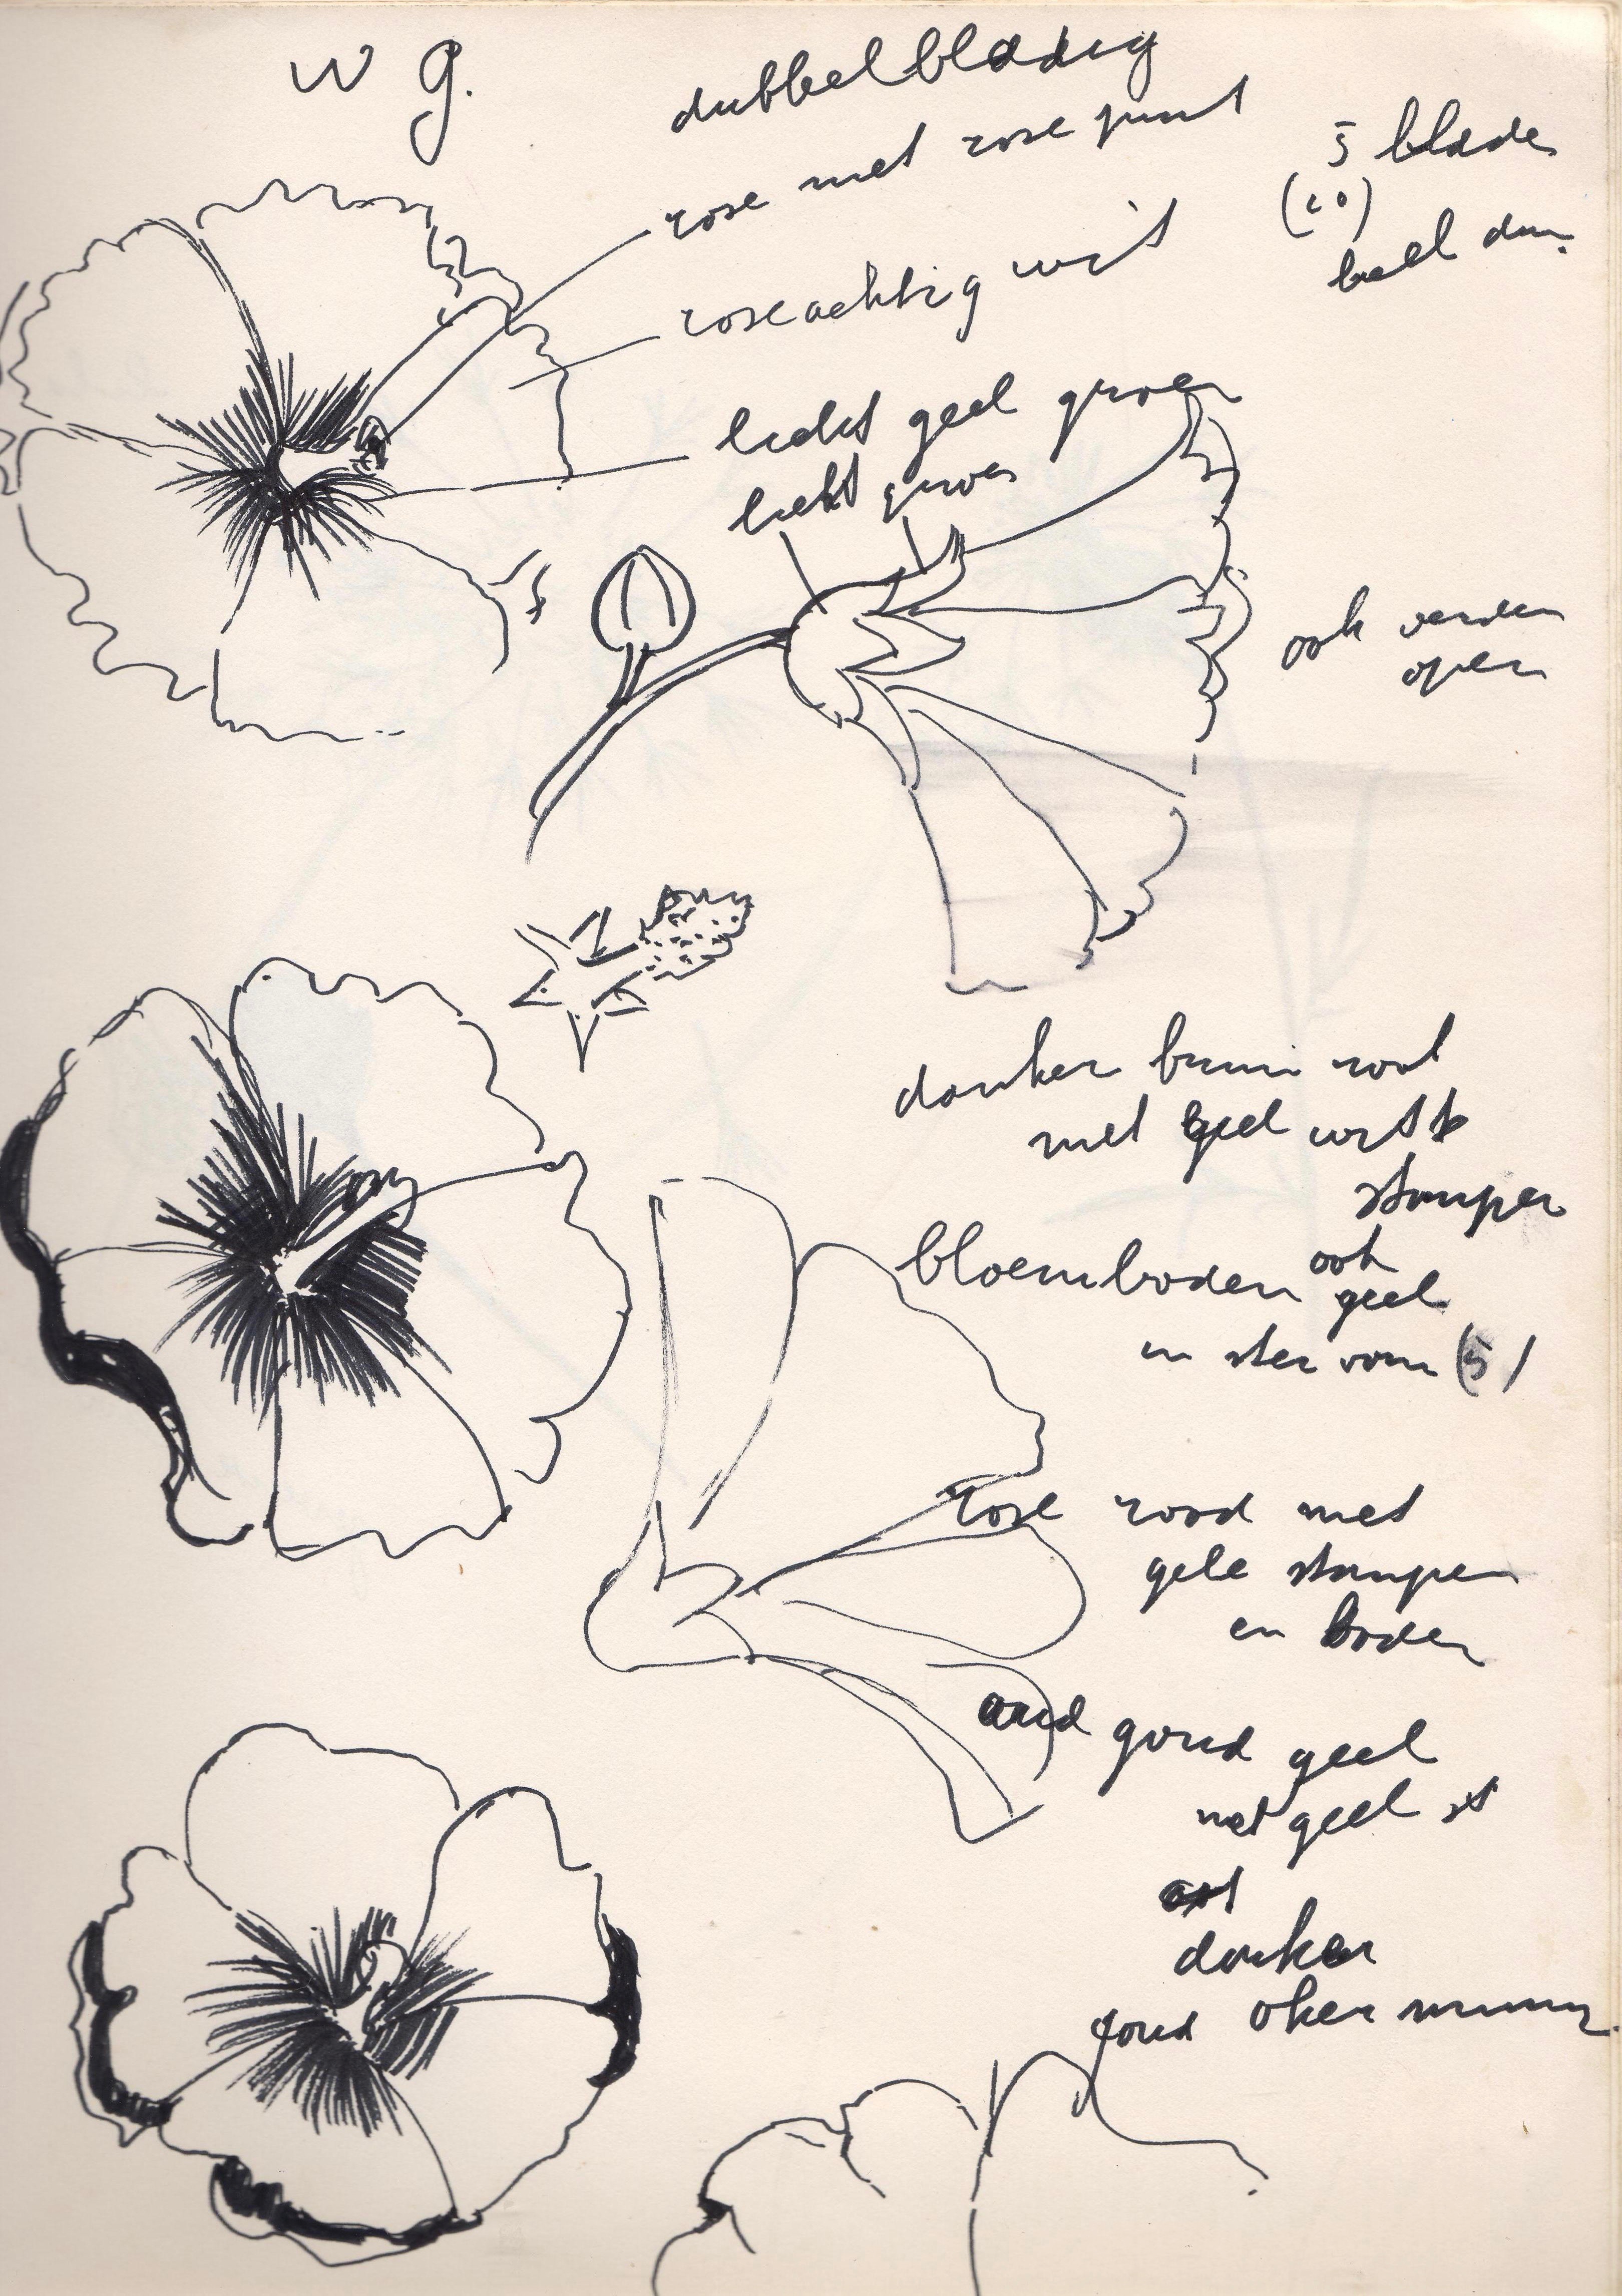 W g.
dubbelbladig
rose met rose punt
5 blade
(10)
heel dun
roseachtig wit
licht geel groen
licht groen
ook verder
open
donker bruin rood
met geel witte
stamper
bloembodem ook
geel
in ster vorm (5)
rose rood met
gele stamper
en bodem
oud goud geel
met geel st
donker
goud oker